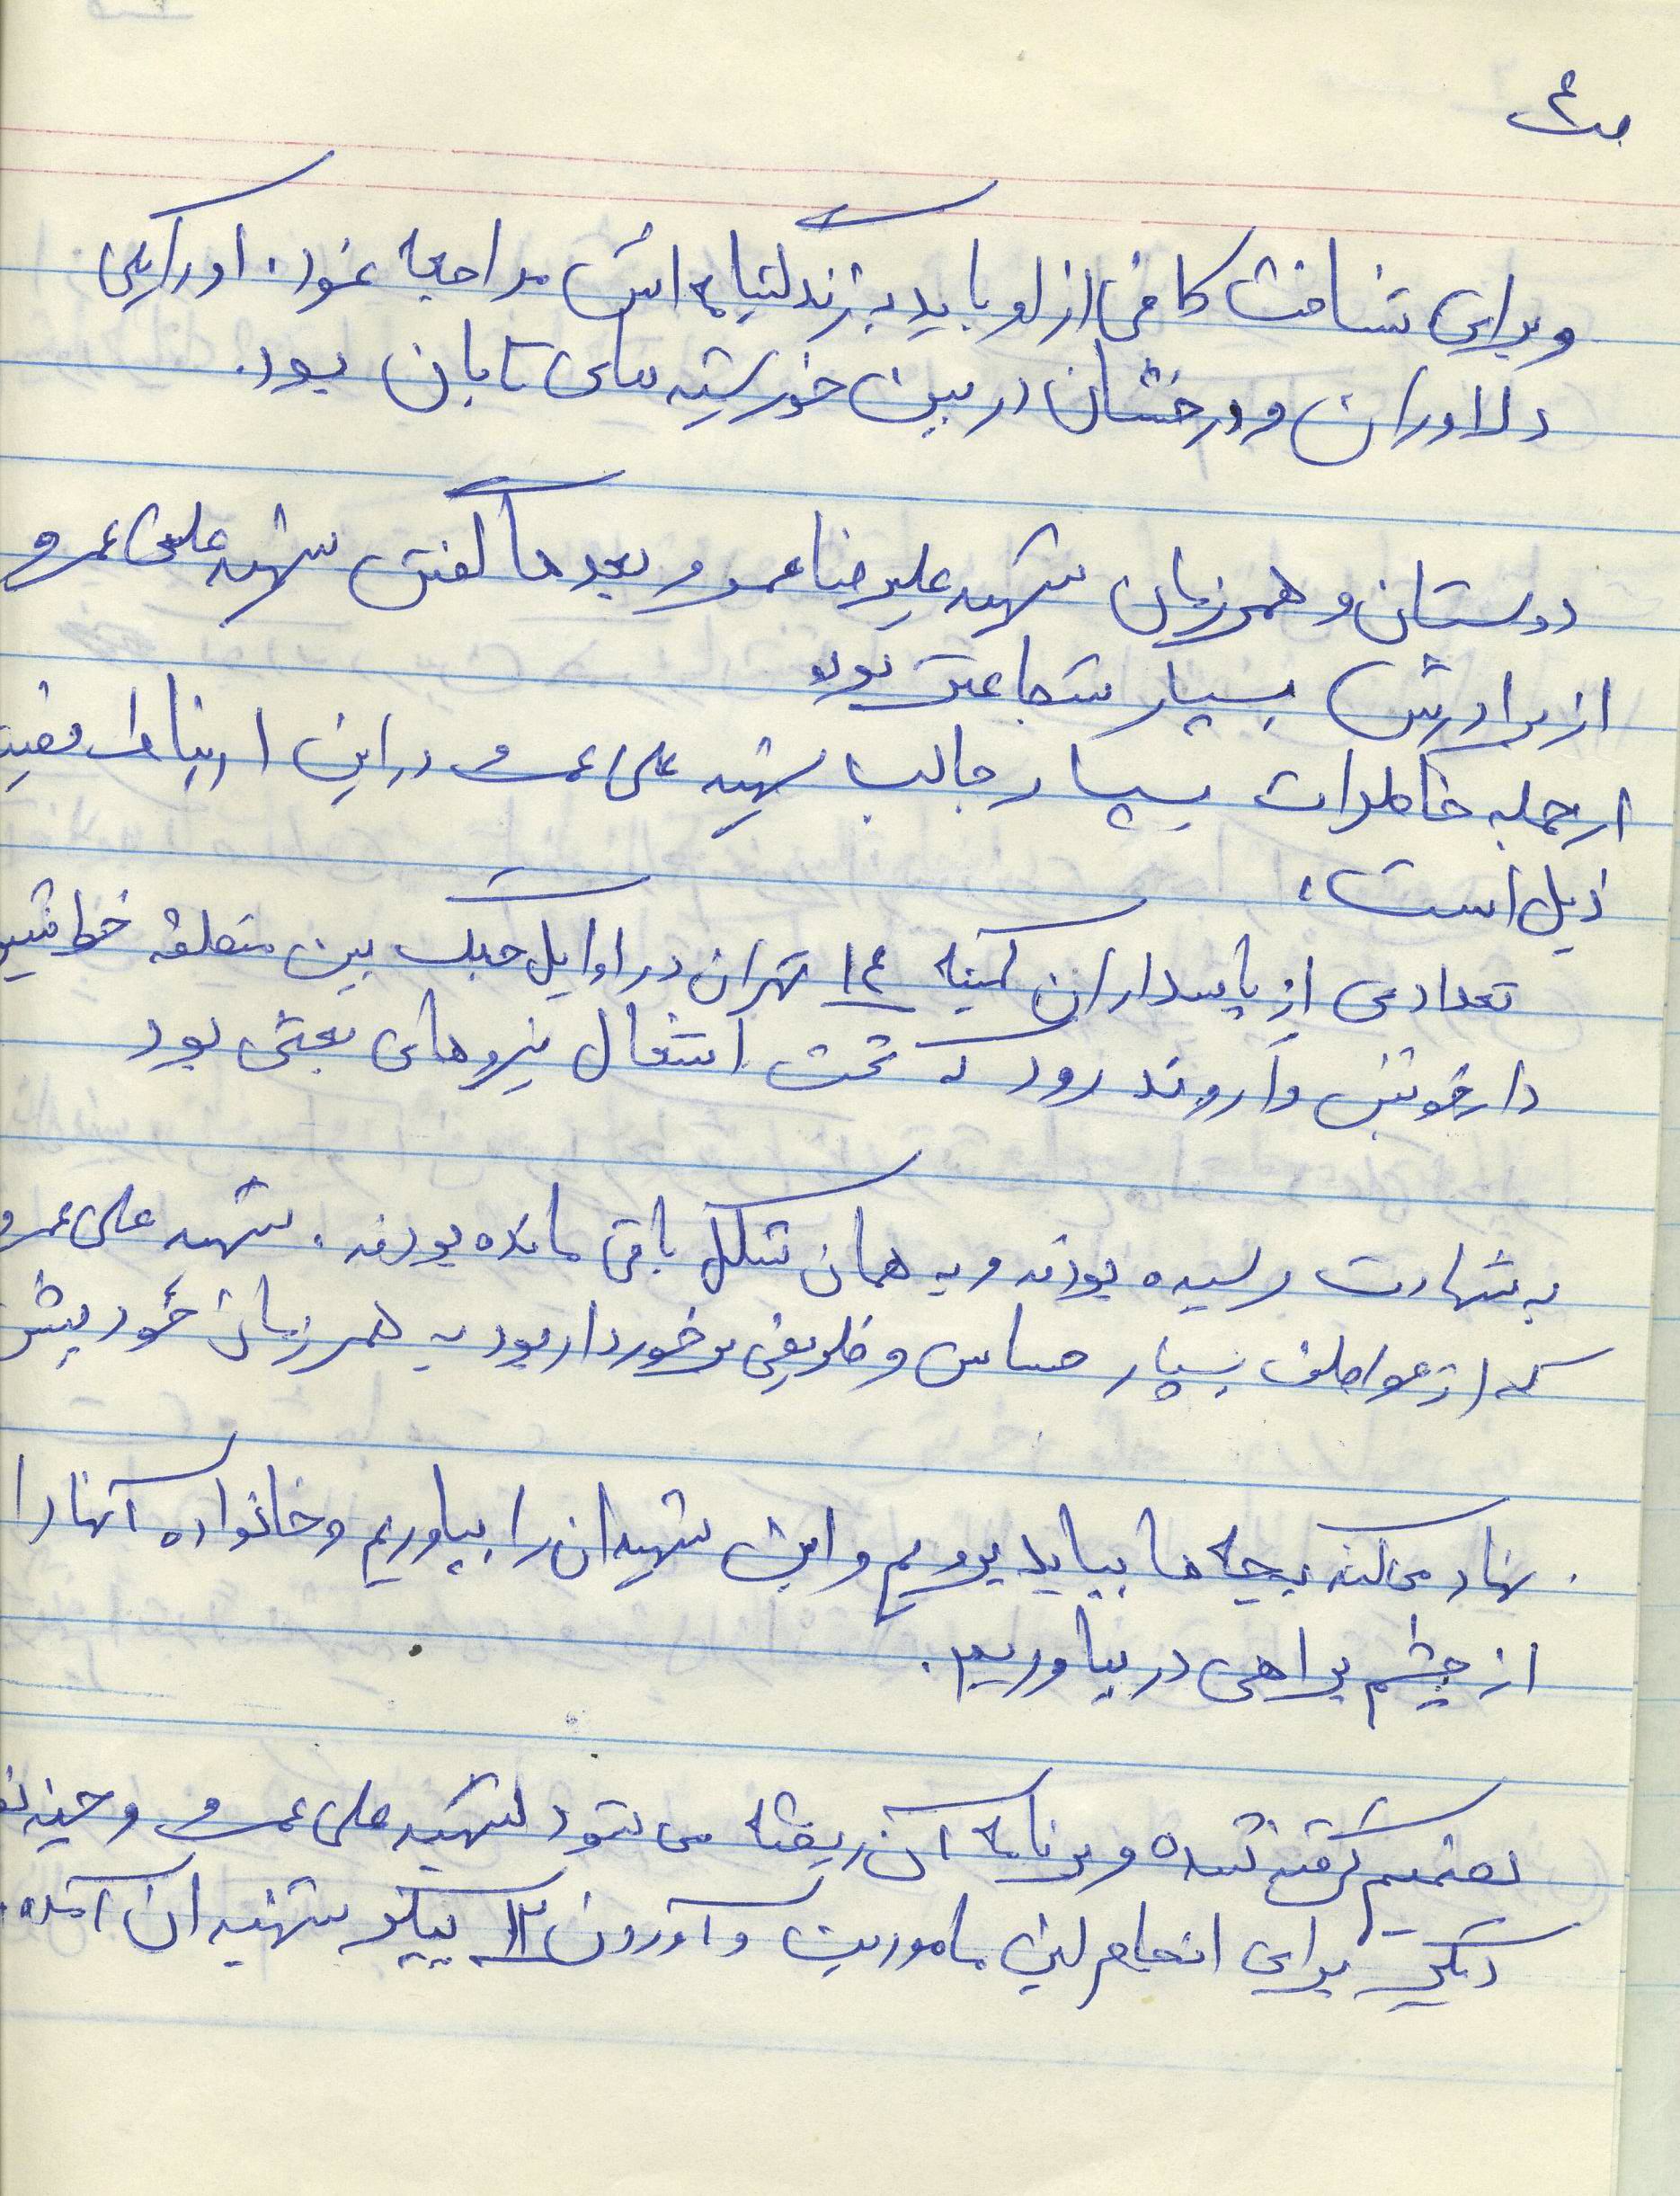 ص ٤
و برای شناخت کافی از او باید به زندگینامه اش مراجعه نمود. او را یکی
دلاوران و درخشان در بین خورشید های تابان بود.
دوستان و همرزمان شهید علیرضا عمو و بعدها گفتن شهید علی عمو
از برادرش بسیار شجاعتر بود
از جمله خاطرات بسیار جالب شهید علی عمو در این ارتباط
ذیل است:
تعدادی از پاسداران کمیته ١٤ تهران در اوایل جنگ بین منطقه
دارخوئین و اروند رود که تحت اشغال نیروهای بعثی بود
به شهادت رسیده بودند و به همان شکل باقی مانده بودند. شهید علی عمو
که از عواطف بسیار حساس و ظریفی برخوردار بود به همرزمان خود پیش
نهاد می کند بچه ها بیاید برویم و این شهیدان را بیاوریم و خانواده آنها را
از چشم براهی در بیاوریم.
تصمیم گرفته شده و برنامه آن ریخته می شود شهید علی عمو و چند نفر
دیگر برای انجام این ماموریت و آوردن ١٣ پیکر شهیدان آمده